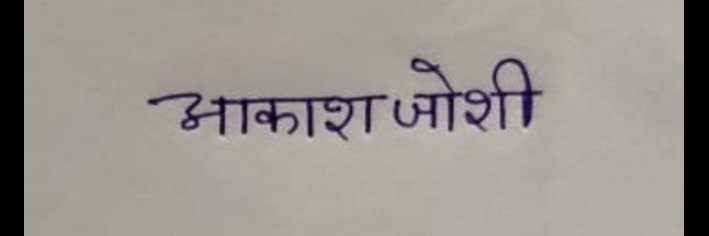 आकाश जोशी